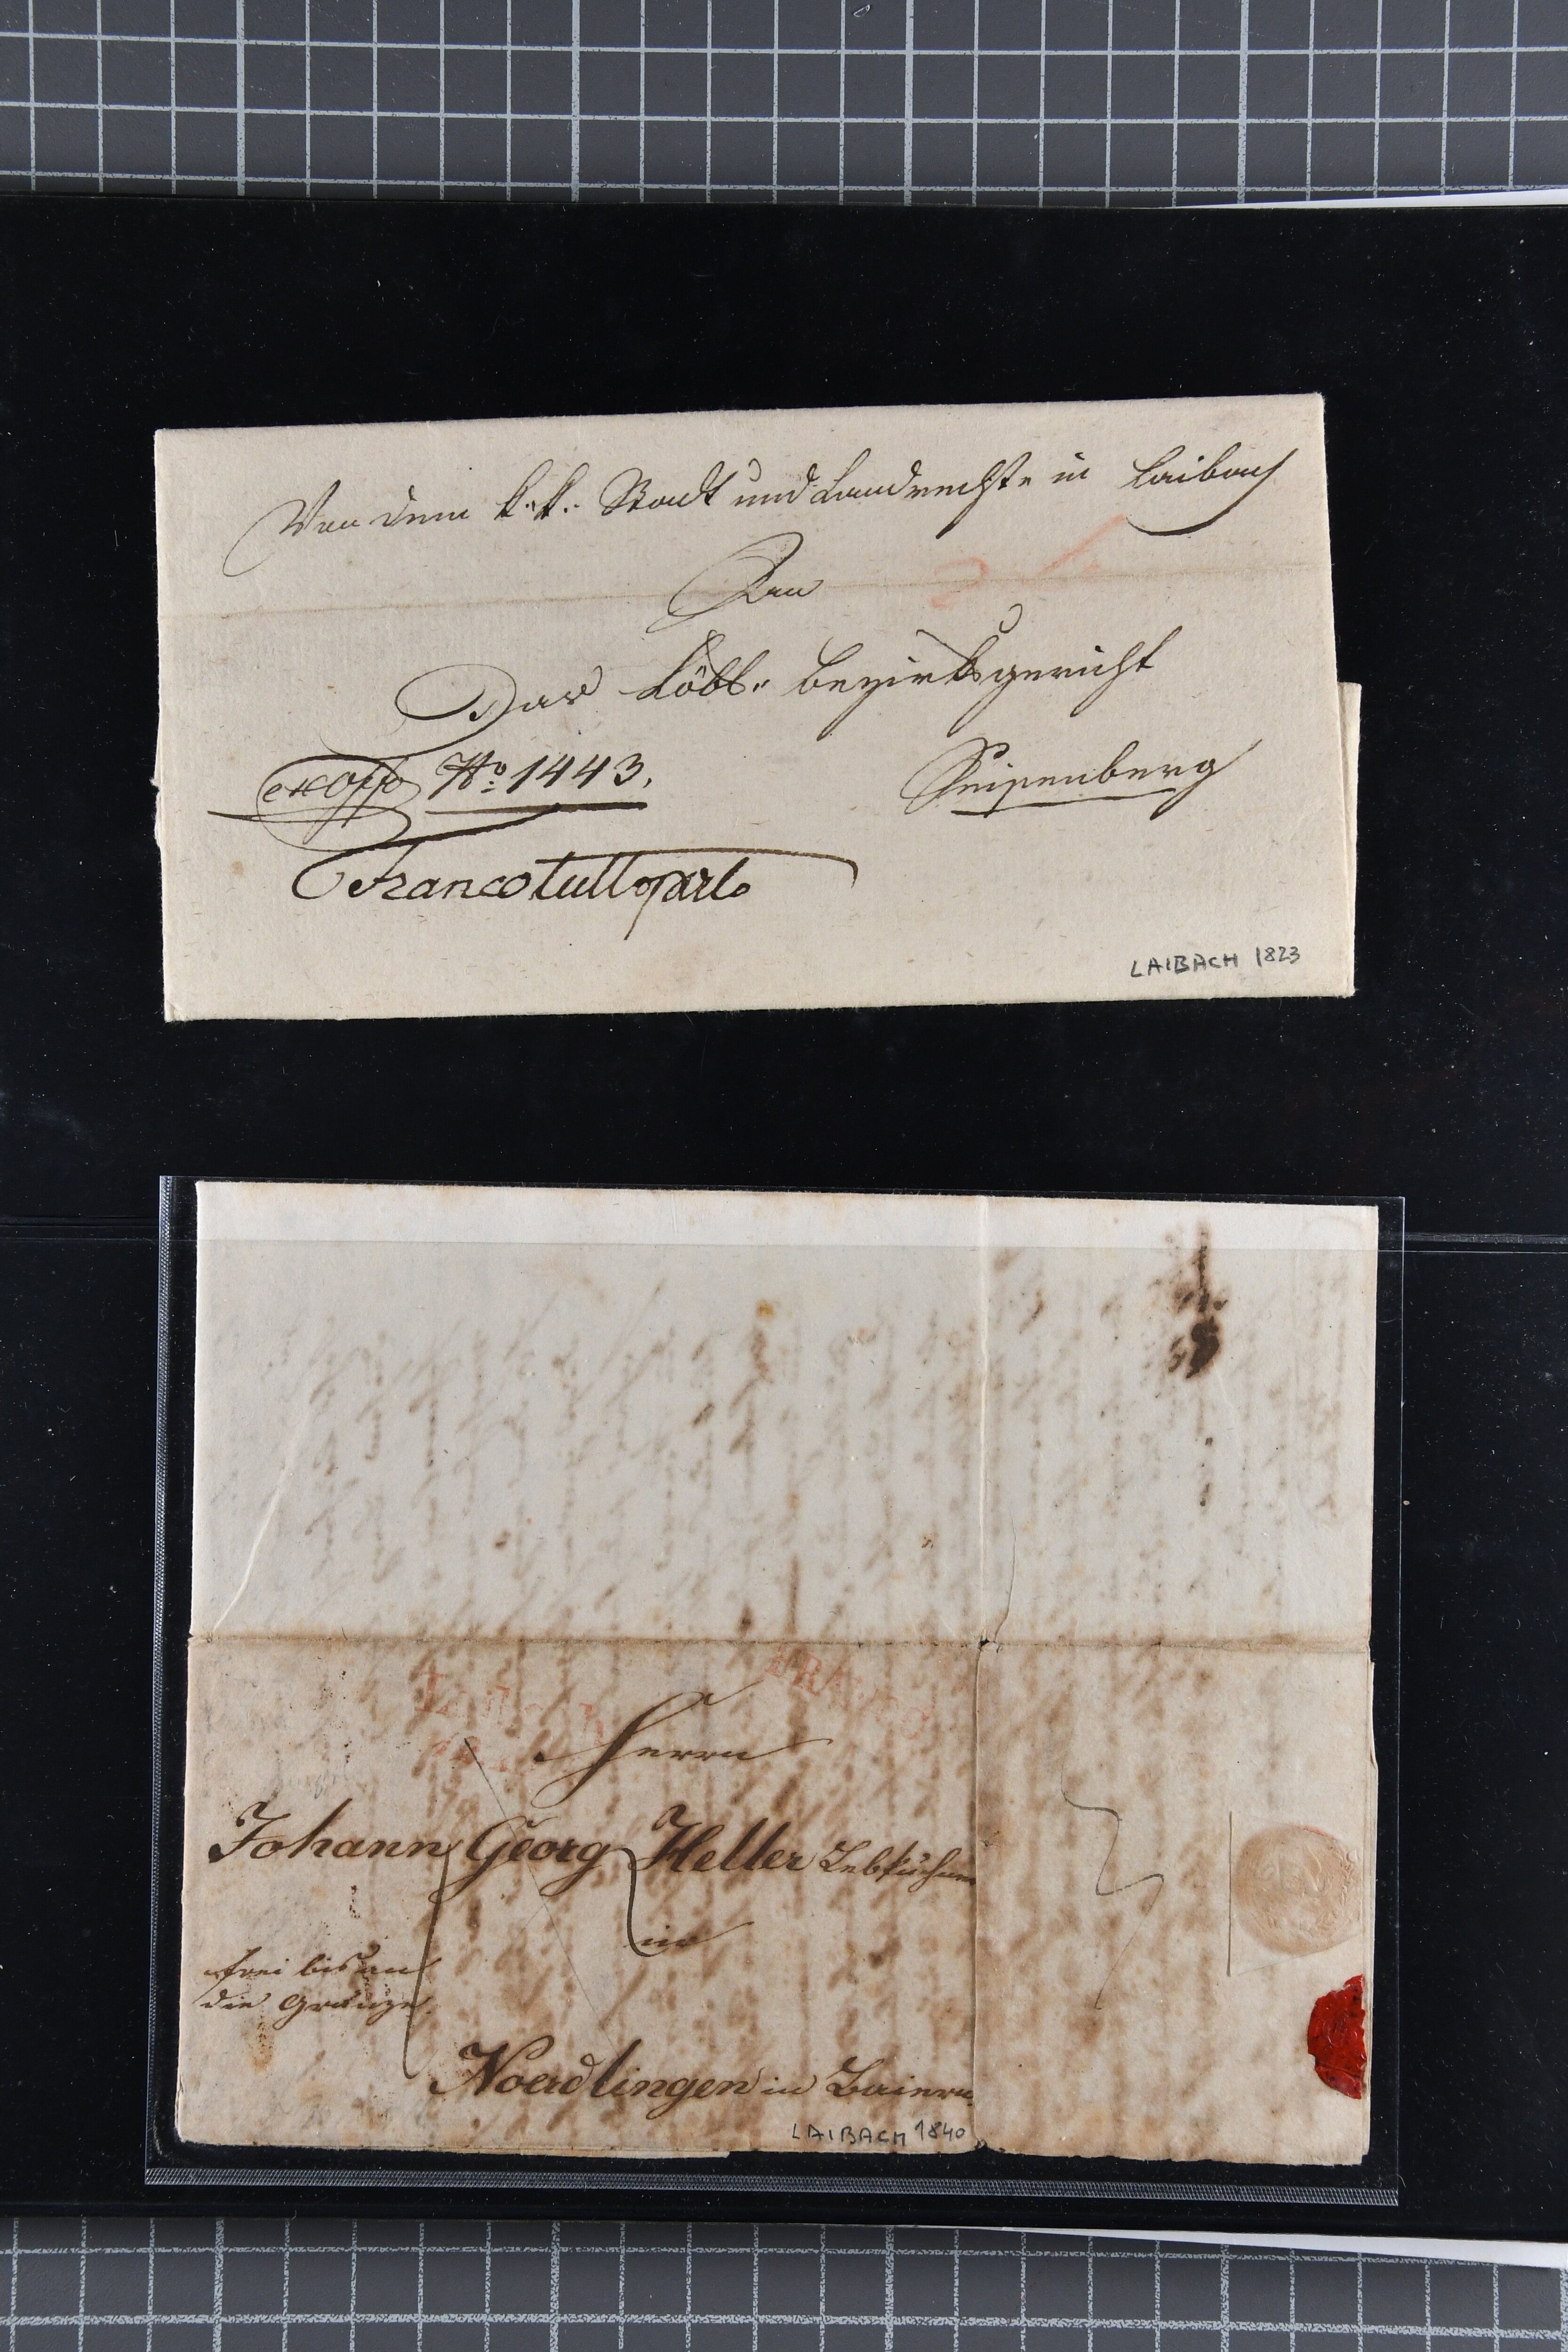 Von dem k: k: Stadt und Landrechte in Laibach
An
Das Löbl. Bezirksgericht
ex Offo No: 1443.
Seisenberg
Franco tutto parto
LAIBACH 1823
FRANCO
Herrn
Johann Georg Heller Lebküchner
in
frei bis an
die Gränze.
Noerdlingen in Baiern
LAIBACH 1840